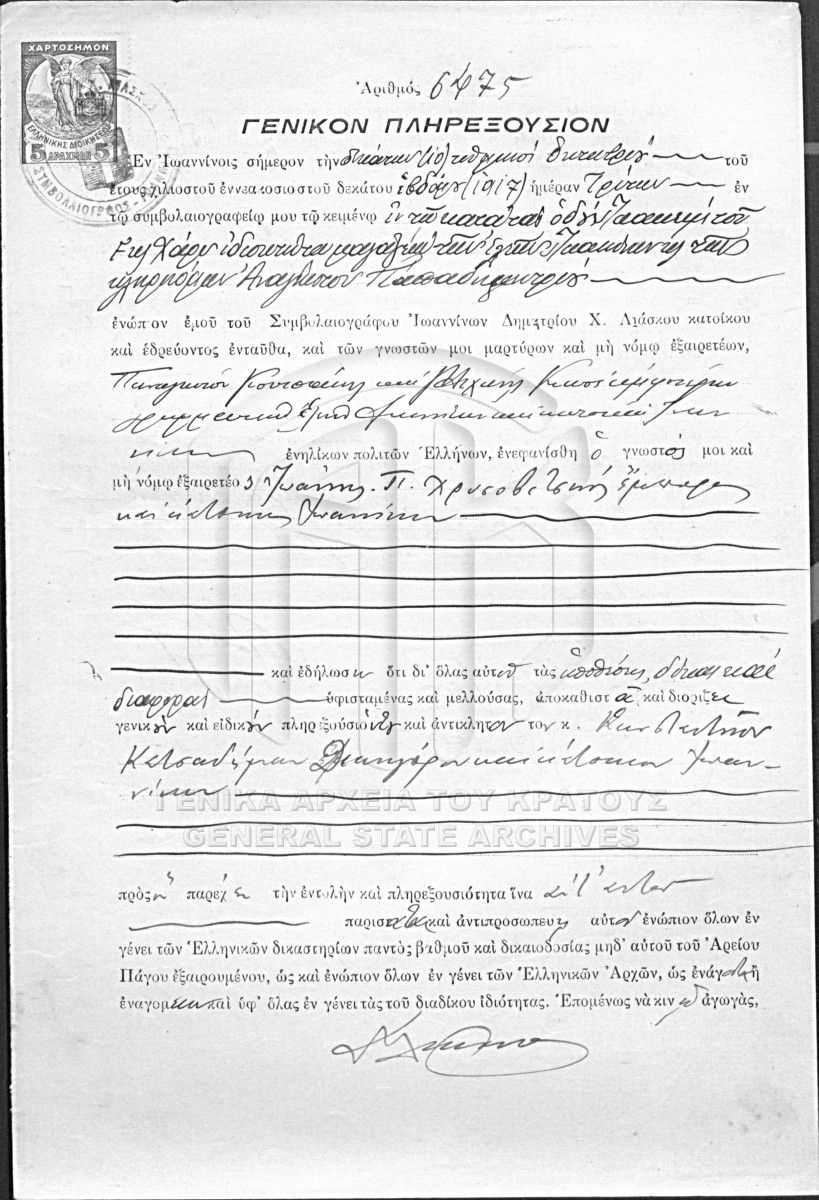 ΧΑΡΤΟΣΗΜΟΝ
ΕΛΛΗΝΙΚΗΣ ΔΙΟΙΚΗΣΕΩΣ
5 ΔΡΑΧΜΩΝ 5
ΣΥΜΒΟΛΑΙΟΓΡΑΦΟΣ
Ἀριθμός 6475
ΓΕΝΙΚΟΝ ΠΛΗΡΕΞΟΥΣΙΟΝ
Ἐν Ἰωαννίνοις σήμερον τὴν δεκάτην (10) τοῦ
ἔτους χιλιοστοῦ ἐννεακοσιοστοῦ δεκάτου ἑβδόμου (1917) ἡμέραν Τρίτην ἐν
τῷ συμβολαιογραφείῳ μου τῷ κειμένῳ ἐν τῷ κατὰ τὴν ὁδὸν
Ἀναγνώστου Παπαδημητρίου
ἐνώπιον ἐμοῦ τοῦ Συμβολαιογράφου Ἰωαννίνων Δημητρίου Χ. Λιάσκου κατοίκου
καὶ ἑδρεύοντος ἐνταῦθα, καὶ τῶν γνωστῶν μοι μαρτύρων καὶ μὴ νόμῳ ἐξαιρετέων,
Παναγιώτου καὶ
καὶ κατοίκων Ἰωαν
νίνων ἐνηλίκων πολιτῶν Ἑλλήνων, ἐνεφανίσθη ὁ γνωστός μοι καὶ
μὴ νόμῳ ἐξαιρετέος Ἰωάννης Π. Χρυσοβιτσινὸς ἔμπορος
καὶ κάτοικος Ἰωαννίνων
καὶ ἐδήλωσεν ὅτι δι' ὅλας αὐτοῦ τὰς ὑποθέσεις, δίκας καὶ
διαφοράς ὑφισταμένας καὶ μελλούσας, ἀποκαθιστᾷ καὶ διορίζει
γενικὸν καὶ εἰδικὸν πληρεξούσιόν του καὶ ἀντίκλητον τον κ. Κωνσταντῖνον
Κατσαδήμαν Δικηγόρον καὶ κάτοικον Ἰωαν-
νίνων
ΓΕΝΙΚΑ ΑΡΧΕΙΑ ΤΟΥ ΚΡΑΤΟΥΣ
GENERAL STATE ARCHIVES
πρὸς ὃν παρέχει τὴν ἐντολὴν καὶ πληρεξουσιότητα ἵνα ἀντ' αὐτοῦ
παριστᾶται καὶ ἀντιπροσωπεύῃ αὐτὸν ἐνώπιον ὅλων ἐν
γένει τῶν Ἑλληνικῶν δικαστηρίων παντὸς βαθμοῦ καὶ δικαιοδοσίας μηδ' αὐτοῦ τοῦ Ἀρείου
Πάγου ἐξαιρουμένου, ὡς καὶ ἐνώπιον ὅλων ἐν γένει τῶν Ἑλληνικῶν Ἀρχῶν, ὡς ἐνάγοντα ἢ
ἐναγόμενον καὶ ὑφ' ὅλας ἐν γένει τὰς τοῦ διαδίκου ἰδιότητας. Ἑπομένως νὰ κινῇ ἀγωγάς,